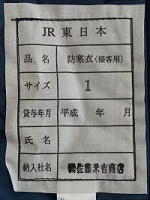 JR東日本
品名 防寒衣(接客用)
サイズ 1
貸与年月 平成 年 月
氏名
納入社名 ㈱佐藤米吉商店